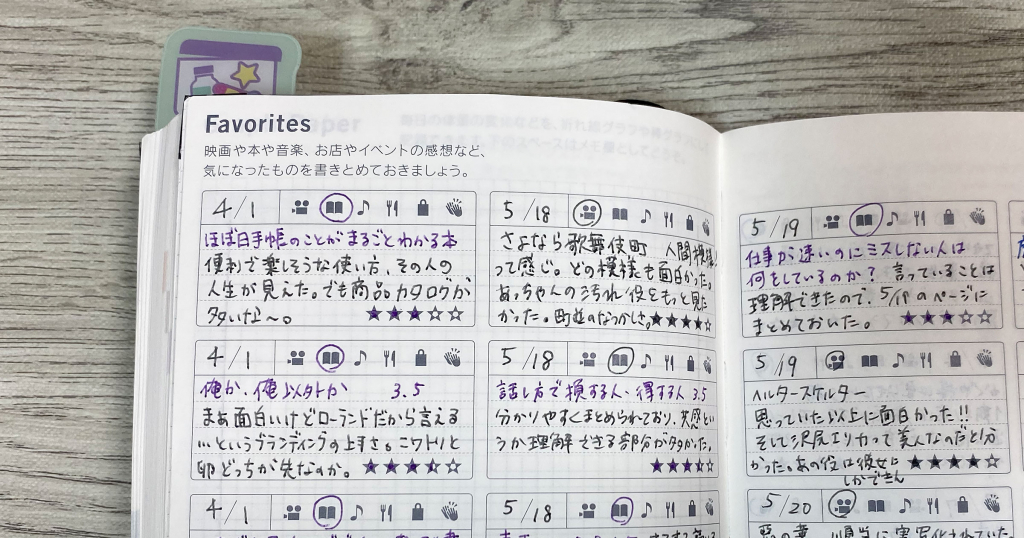 Favorites
映画や本や音楽、お店やイベントの感想など、
気になったものを書きとめておきましょう。
4/1
ほぼ日手帳のことがまるごとわかる本
便利で楽しそうな使い方、その人の
人生が見えた。でも商品カタログが
多いな〜。 ★★★☆☆
4/1
俺か、俺以外か 3.5
まあ面白いけどローランドだから言える
…というブランディングの上手さ。ニワトリと
卵どっちが先なのか。 ★★★★☆
4/1
5/18
さよなら歌舞伎町 人間模様
って感じ。どの模様も面白かった。
あっちゃんの汚れ役をもっと見た
かった。町並のなつかしさ。★★★★☆
5/18
話し方で損する人・得する人 3.5
分かりやすくまとめられており、共感とい
うか理解できる部分が多かった。
★★★★☆
5/18
5/19
仕事が速いのにミスしない人は
何をしているのか? 言っていることは
理解できたので、5/19のページに
まとめておいた。 ★★★☆☆
5/19
ヘルタースケルター
思っていた以上に面白かった!!
そして沢尻エリカって美人なのだと分
かった。あの役は彼女に ★★★★☆
しかできん
5/20